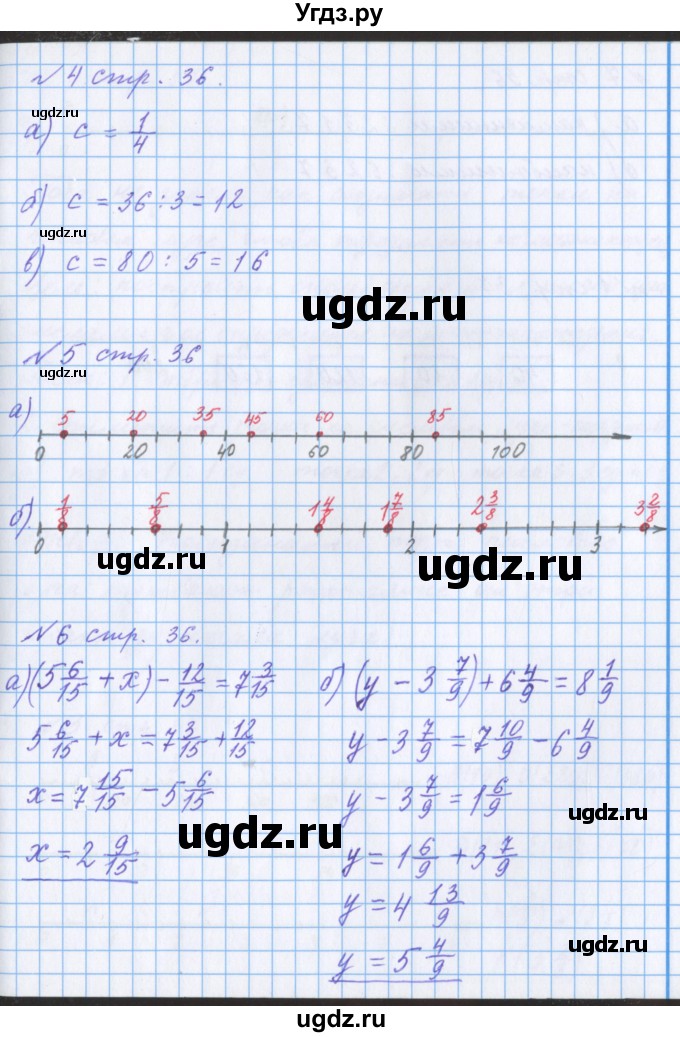 Угдз.ру
№4 стр. 36.
ugdz.ru
а) c = 1/4
б) c = 36 : 3 = 12
ugdz.ru
в) c = 80 : 5 = 16
ugdz.ru
№5 стр. 36
ugdz.ru
а) 5 20 35 45 60 85
0 20 60 80 100
б) 1/8 5/8 1 4/8 1 7/8 2 3/8 3 2/8
0 1 2 3
ugdz.ru ugdz.ru
№6 стр. 36.
а) (5 6/15 + x) - 12/15 = 7 3/15 б) (y - 3 7/9) + 6 4/9 = 8 1/9
5 6/15 + x = 7 3/15 + 12/15 y - 3 7/9 = 7 10/9 - 6 4/9
x = 7 15/15 - 5 6/15 y - 3 7/9 = 1 6/9
ugdz.ru ugdz.ru
x = 2 9/15 y = 1 6/9 + 3 7/9
y = 4 13/9
ugdz.ru
y = 5 4/9
ugdz.ru